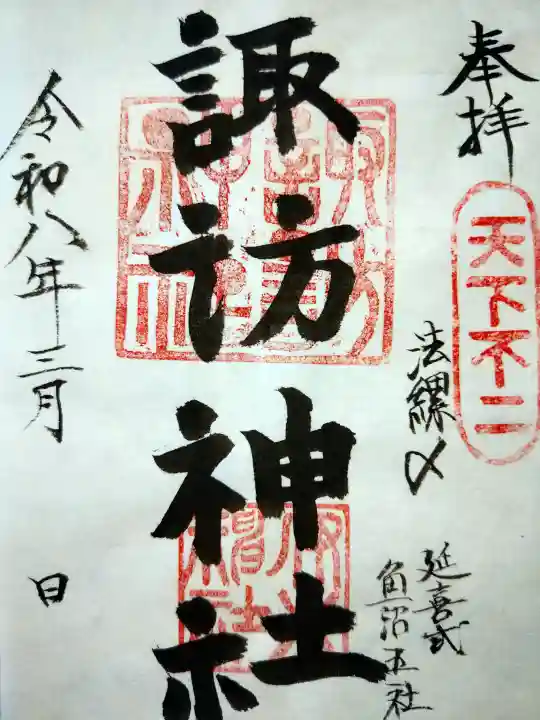 奉拝
天下不二
法螺〆
延喜式
魚沼五社
諏訪神社
令和八年三月
日